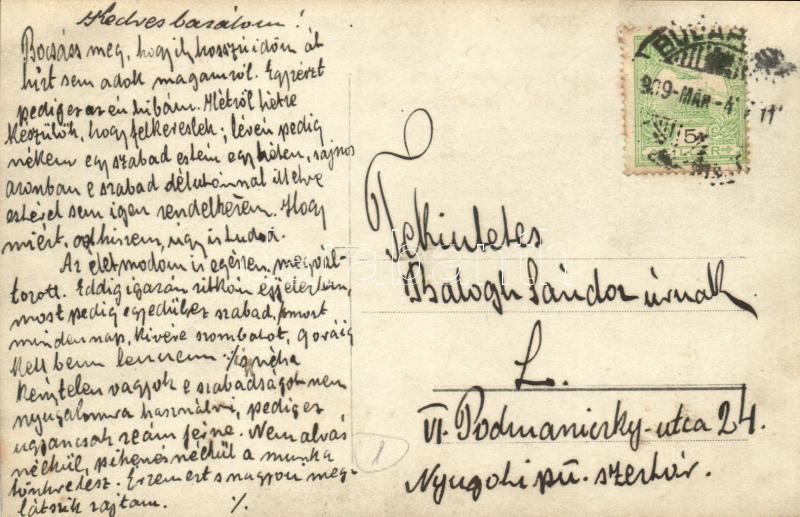 Kedves barátom!
Bocsáss meg, hogy ily hosszú időn át
hírt sem adok magamról. Egyrészt
pedig ez az én hibám. Hétről hétre
készülök, hogy felkereslek; lévén pedig
nékem egy szabad estém egy héten, sajnos
azonban e szabad délutánnal illetve
estével sem igen rendelkezem. Hogy
miért, azt hiszem, úgy is tudod.
Az életmódom is egészen megvál-
tozott. Eddig igazán ritkán éjjeleztem,
most pedig egyedüli ez szabad, most
minden nap, kivéve szombatot, 9 óráig
kell benn lennem. néha
kénytelen vagyok e szabadságot nem
nyugalomra használni, pedig ez
ugyancsak reám férne. Nem alvás
nélkül, pihenés nélkül a munka
tönkretesz. Érzem ez s nagyon meg-
látszik rajtam. %
BUDAP
909-MÁR-4
11
5
Tekintetes
Balogh Sándor úrnak
L.
VI. Podmaniczky-utca 24.
Nyugoti pu. szertár.
1